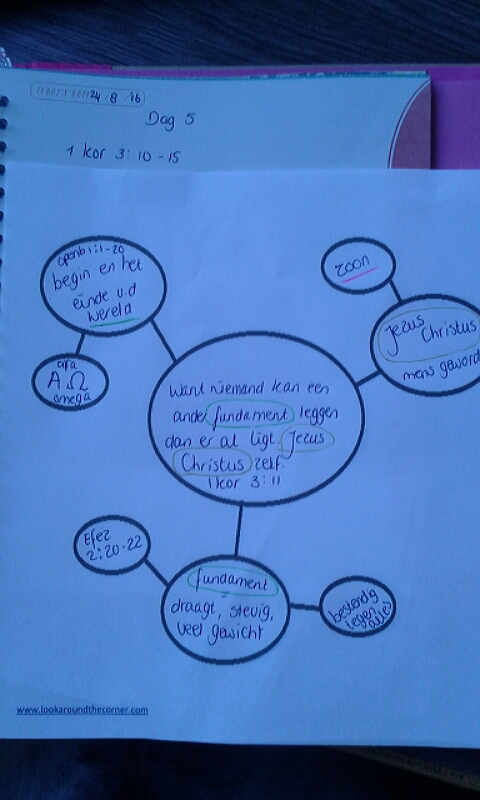 24 8 '16
Dag 5
1 kor 3: 10 - 15
openb 1:1-20
begin en het
einde v.d
wereld
alfa
A Ω
omega
zoon
Jezus
Christus
mens geword
Want niemand kan een
ander fundament leggen
dan er al ligt. Jezus
Christus zelf.
1 kor 3:11
Efez
2:20-22
fundament
=
draagt, stevig,
veel gewicht
bestendig
tegen
alles
www.lookaroundthecorner.com